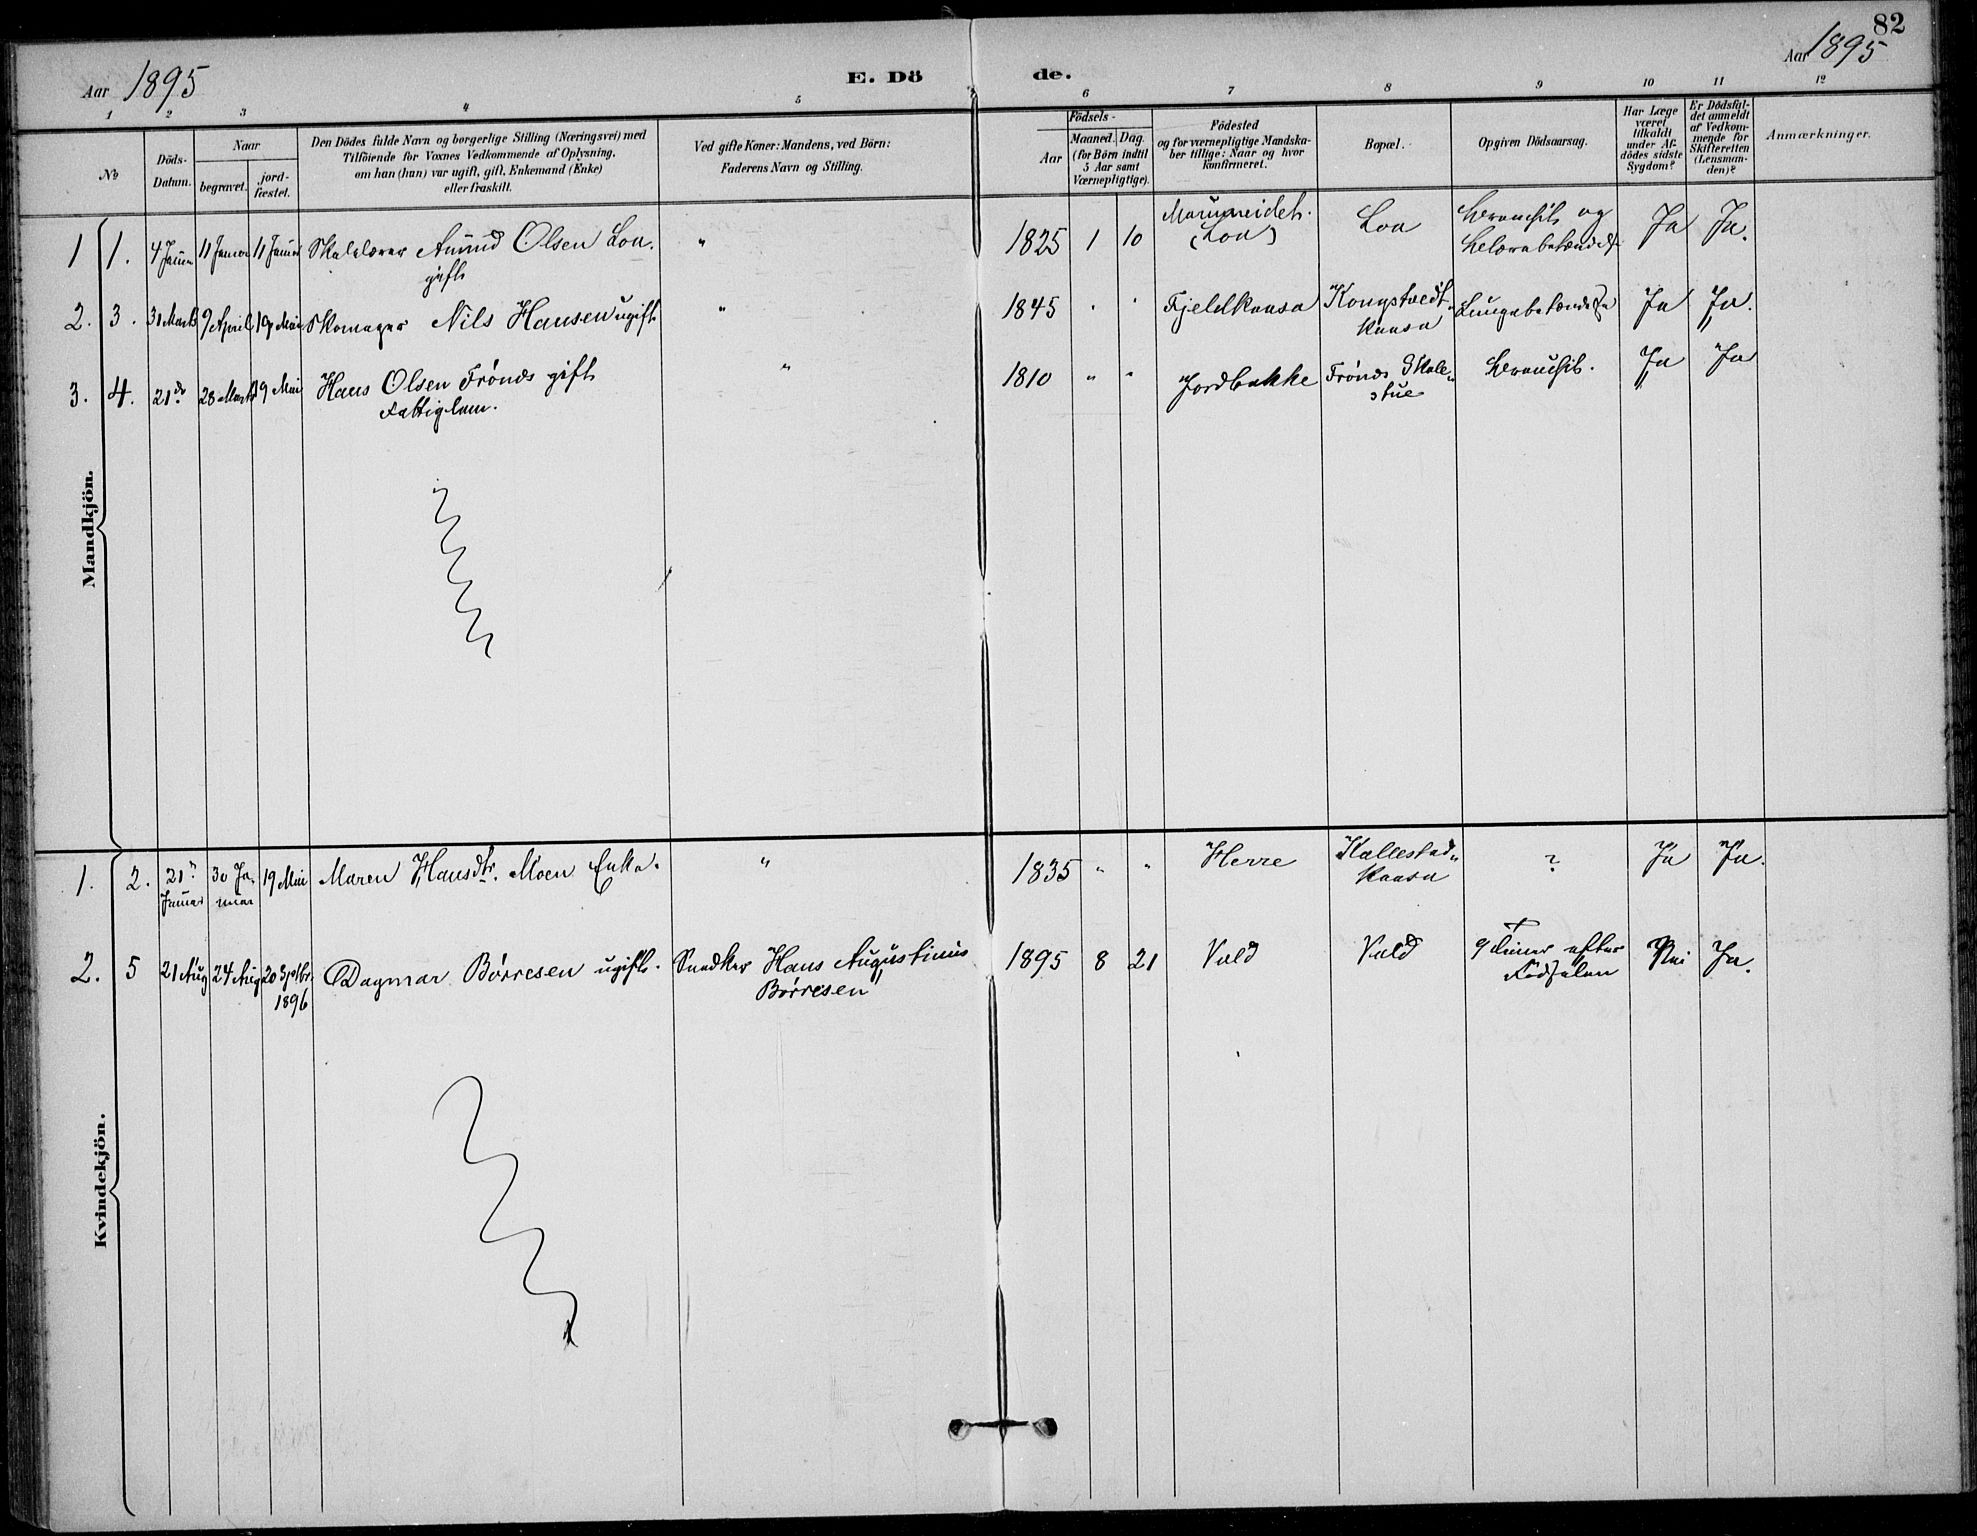 82
Aar 1895
E. Dö de.
Aar 1895
1 2 3 4 5 6 7 8 9 10 11 12
No
Döds-
Datum.
Naar
begravet.
jord-
fæstet.
Den Dödes fulde Navn og borgerlige Stilling (Næringsvei) med
Tilföiende for Voxnes Vedkommende af Oplysning,
om han (hun) var ugift, gift, Enkemand (Enke)
eller fraskilt.
Ved gifte Koner: Mandens, ved Börn:
Faderens Navn og Stilling.
Födsels-
Aar
Maaned. Dag.
(for Börn indtil
5 Aar samt
Værnepligtige).
Födested
og for værnepligtige Mandska-
ber tillige: Naar og hvor
konfirmeret.
Bopæl.
Opgiven Dödsaarsag.
Har Læge
været
tilkaldt
under Af-
dödes sidste
Sygdom?
Er Dödsfal-
det anmeldt
af Vedkom-
mende for
Skifteretten
(Lensman-
den)?
Anmærkninger.
Mandkjön.
1 1. 4 Januar 11 Januar 11 Januar Skolelærer Amund Olsen Loa.
gift
" 1825 1 10
(Loa)
Loa
og
Ja Ja.
2. 3. 31 Marts 9 April 19 Mai Skomager Nils Hansen ugift
" 1845 " " Fjeldkaasa
kaasa
Lungebetændelse Ja Ja.
3. 4. 21 do 28 Marts 19 Mai Hans Olsen Trönds gift
Fattiglem.
" 1810 " " Jordbakke Trönds Skole-
stue
Ja Ja
Kvindekjön.
1. 2. 21
Januar
30 Ja-
nuar
19 Mai Maren Hansdtr. Moen Enke.
" 1835 " " Herre
Kallestad-
kaasa
? Ja Ja.
2. 5 21 Aug 24 Aug 20 Septbr.
1896
Dagmar Börresen ugift. Snedker Hans Augustinus
Börresen
1895 8 21 Vald Vald 9 Timer efter
Födselen
Nei Ja.